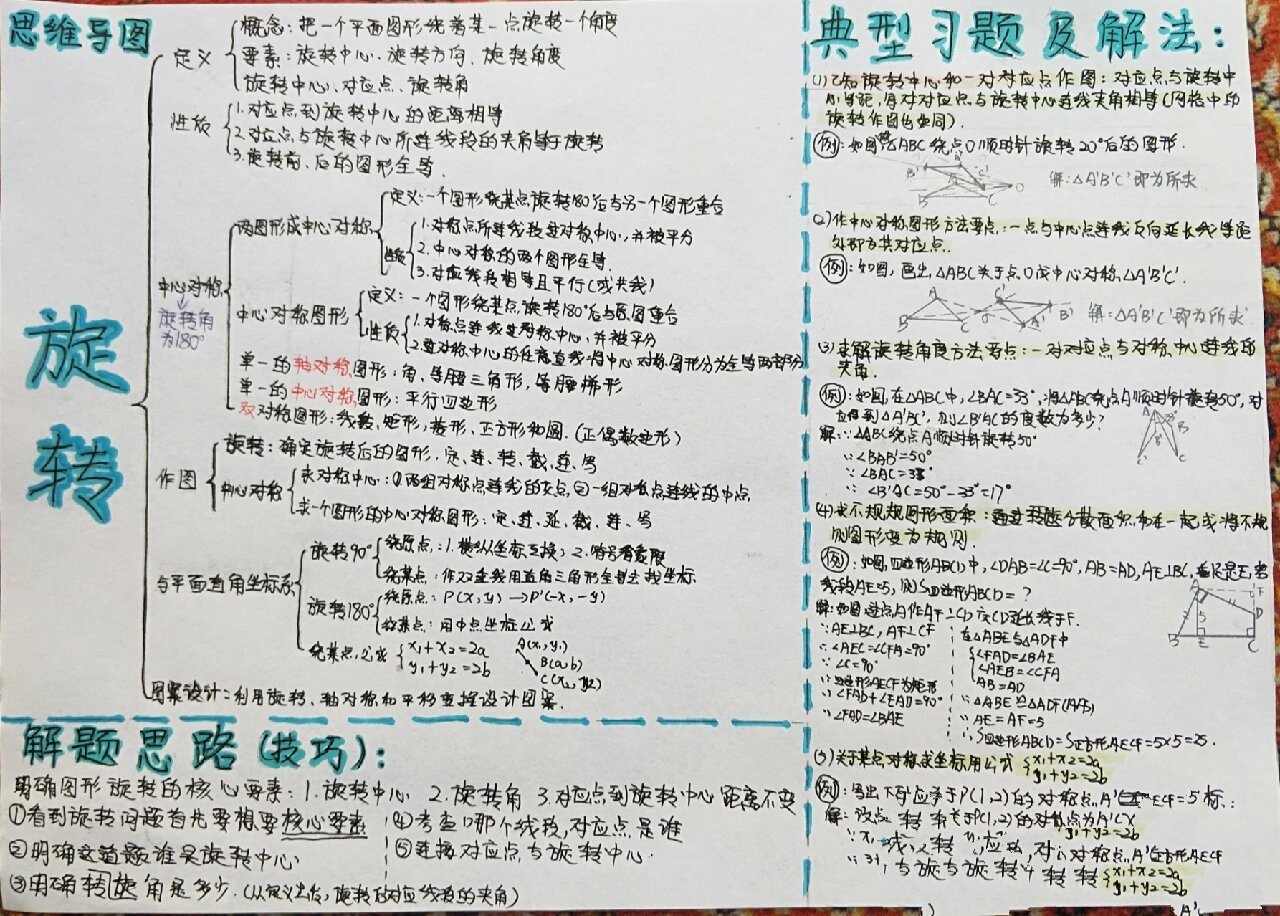 思维导图
旋转
定义
概念：把一个平面图形绕着某一点旋转一个角度
要素：旋转中心、旋转方向、旋转角度
旋转中心、对应点、旋转角
性质
1.对应点到旋转中心的距离相等
2.对应点与旋转中心所连线段的夹角等于旋转
3.旋转前、后的图形全等.
中心对称
旋转角
为180°
两图形成中心对称
定义：一个图形绕某点旋转180°后与另一个图形重合
性质
1.对称点所连线段过对称中心，并被平分
2.中心对称的两个图形全等.
3.对应线段相等且平行(或共线)
中心对称图形
定义：一个图形绕某点旋转180°后与原图重合
性质
1.对称点连线过对称中心，并被平分
2.过对称中心的任意直线将中心对称图形分为全等两部分
单一的轴对称图形：角、等腰三角形，等腰梯形
单一的中心对称图形：平行四边形
双对称图形：线段，矩形，菱形、正方形和圆.(正偶数边形)
作图
旋转：确定旋转后的图形，定、连、转、截、连、写
中心对称
求对称中心：①两组对称点连线的交点，②一组对称点连线的中点
求一个图形的中心对称图形：定、连、延、截、连、写
与平面直角坐标系
旋转90°
绕原点：1.横纵坐标互换；2.符号看象限
绕某点：作双垂线用直角三角形全等去找坐标
旋转180°
绕原点：P(x,y)→P'(-x,-y)
绕某点：用中点坐标公式
绕某点，公式
x₁+x₂=2a
y₁+y₂=2b
A(x₁,y₁)
B(a,b)
C(x₂,y₂)
图案设计：利用旋转、轴对称和平移变换设计图案.
解题思路(技巧)：
明确图形旋转的核心要素：1.旋转中心 2.旋转角 3.对应点到旋转中心距离不变
①看到旋转问题首先要想要核心要素
④考查哪个线段，对应点是谁
②明确这道题谁是旋转中心
⑤连接对应点与旋转中心.
③明确转旋角是多少.(从定义出发，旋转的对应线段的夹角)
典型习题及解法：
(1)已知旋转中心和一对对应点作图：对应点与旋转中
心等距，每对对应点与旋转中心连线夹角相等(网格中的
旋转作图也如同).
例：如图△ABC绕点O顺时针旋转20°后的图形.
解：△A'B'C'即为所求
(2)作中心对称图形方法要点：一点与中心点连线反向延长线等距
外即为其对应点.
例：如图，画出△ABC关于点O成中心对称△A'B'C'.
解：△A'B'C'即为所求
(3)求解旋转角度方法要点：一对对应点与对称中心连线的
夹角.
例：如图，在△ABC中，∠BAC=33°，将△ABC绕点A顺时针旋转50°，对
应得到△A'B'C'，则∠B'AC的度数为多少？
解：∵△ABC绕点A顺时针旋转50°
∴∠BAB'=50°
∵∠BAC=33°
∴∠B'AC=50°-33°=17°
(4)求不规则图形面积：通过转旋分散面积和在一起或将不规
则图形变为规则.
例：如图，四边形ABCD中，∠DAB=∠C=90°，AB=AD，AE⊥BC，垂足是E，若
线段AE=5，则S四边形ABCD=？
解：如图过点A作AF⊥CD交CD延长线于F.
∵AE⊥BC，AF⊥CF
∴∠AEC=∠CFA=90°
∵∠C=90°
∴四边形AECF为矩形
∴∠FAD+∠EAD=90°
∴∠FAD=∠BAE
在△ABE与△ADF中
∠FAD=∠BAE
∠AEB=∠CFA
AB=AD
∴△ABE≌△ADF(AAS)
∴AE=AF=5
∴S四边形ABCD=S正方形AECF=5×5=25.
(5)关于某点对称求坐标用公式
x₁+x₂=2a
y₁+y₂=2b